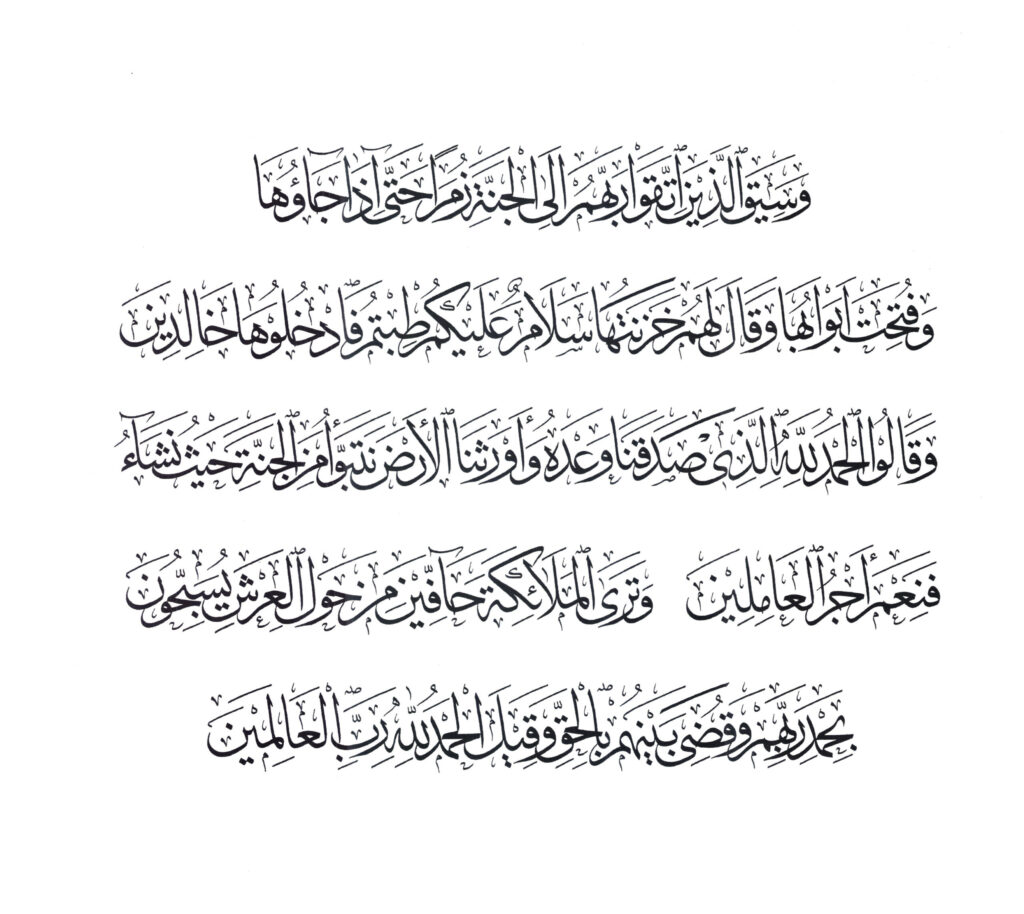 وَسِيقَ ٱلَّذِينَ ٱتَّقَوْا رَبَّهُمْ إِلَى الْجَنَّةِ زُمَرًا حَتَّىٰ إِذَا جَآؤُوهَا
وَفُتِحَتْ أَبْوَابُهَا وَقَالَ لَهُمْ خَزَنَتُهَا سَلَامٌ عَلَيْكُمْ طِبْتُمْ فَٱدْخُلُوهَا خَالِدِينَ
وَقَالُوا ٱلْحَمْدُ لِلَّهِ ٱلَّذِى صَدَقَنَا وَعْدَهُ وَأَوْرَثَنَا ٱلْأَرْضَ نَتَبَوَّأُ مِنَ ٱلْجَنَّةِ حَيْثُ نَشَآءُ
فَنِعْمَ أَجْرُ ٱلْعَامِلِينَ وَتَرَى ٱلْمَلَائِكَةَ حَآفِّينَ مِنْ حَوْلِ ٱلْعَرْشِ يُسَبِّحُونَ
بِحَمْدِ رَبِّهِمْ وَقُضِىَ بَيْنَهُمْ بِٱلْحَقِّ وَقِيلَ ٱلْحَمْدُ لِلَّهِ رَبِّ ٱلْعَالَمِينَ